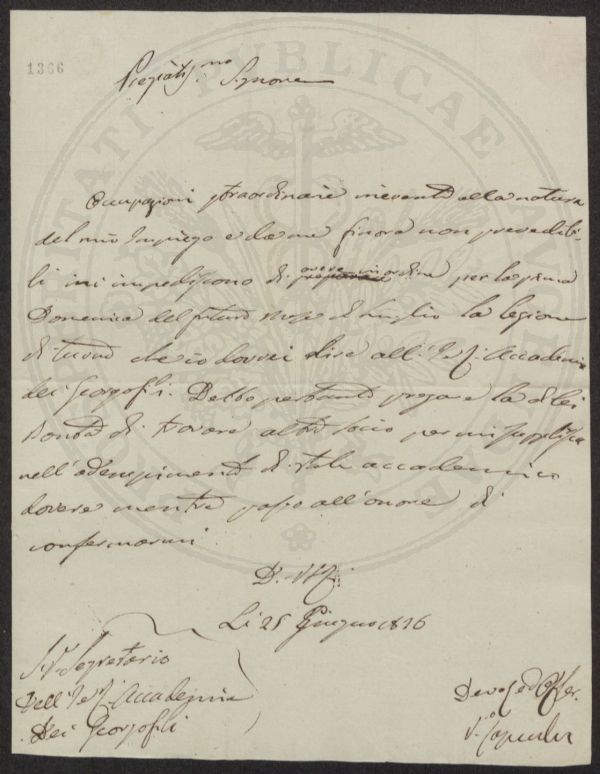 1366
Pregiatis.mo Signore
Occupazioni straordinarie inerenti alla natura
del mio Impiego e da me finora non prevedibi-
li mi impediscono di avere in ordine per la prima
Domenica del futuro mese di Luglio la lezione
di turno che io dovrei dire all' I. e R. Accademia
dei Georgofili. Debbo pertanto pregare la di lei
bontà di trovare altro socio per mi supplisca
nell'adempimento di tale accademico
dovere mentre passo all'onore di
confermarmi.
D. V. S.
Li 25 Giugno 1816
Sig. Segretario
Dell' I. e R. Accademia
Dei Georgofili
Devo. ed Obb. Ser.